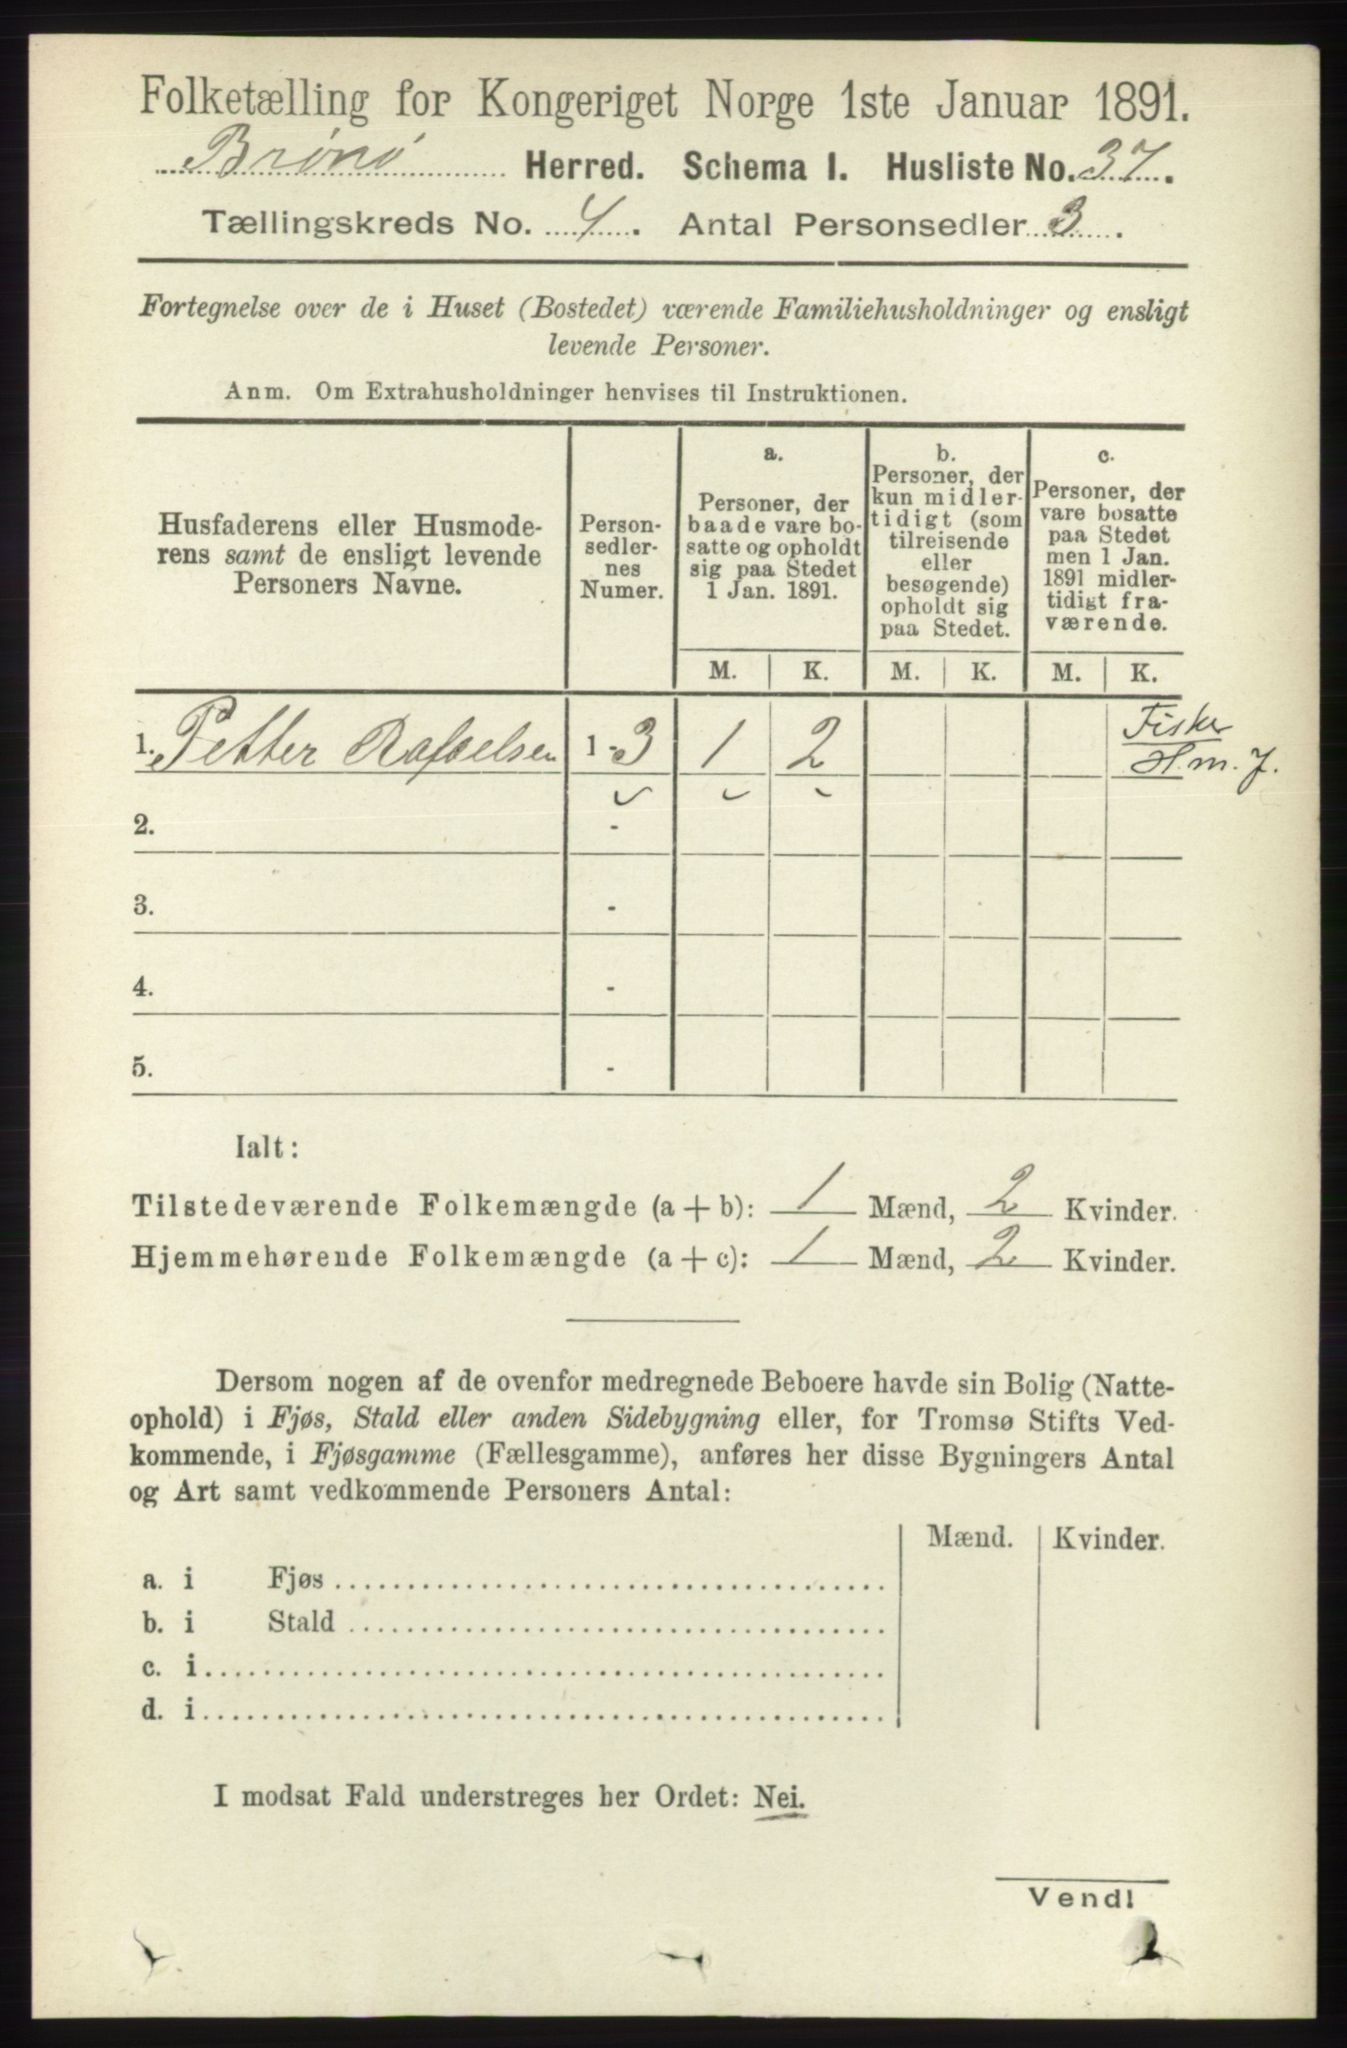 Folketælling for Kongeriget Norge 1ste Januar 1891.
Brønø Herred. Schema I. Husliste No. 37.
Tællingskreds No. 4. Antal Personsedler 3.
Fortegnelse over de i Huset (Bostedet) værende Familiehusholdninger og ensligt
levende Personer.
Anm. Om Extrahusholdninger henvises til Instruktionen.
Husfaderens eller Husmode-
rens samt de ensligt levende
Personers Navne.
Person-
sedler-
nes
Numer.
a.
Personer, der
baade vare bo-
satte og opholdt
sig paa Stedet
1 Jan. 1891.
b.
Personer, der
kun midler-
tidigt (som
tilreisende
eller
besøgende)
opholdt sig
paa Stedet.
c.
Personer, der
vare bosatte
paa Stedet
men 1 Jan.
1891 midler-
tidigt fra-
værende.
M. K. M. K. M. K.
1. Petter Rafaelsen 1-3 1 2 Fisker
H. m. J.
2. -
3. -
4. -
5. -
Ialt:
Tilstedeværende Folkemængde (a + b): 1 Mænd, 2 Kvinder.
Hjemmehørende Folkemængde (a + c): 1 Mænd, 2 Kvinder.
Dersom nogen af de ovenfor medregnede Beboere havde sin Bolig (Natte-
ophold) i Fjøs, Stald eller anden Sidebygning eller, for Tromsø Stifts Ved-
kommende, i Fjøsgamme (Fællesgamme), anføres her disse Bygningers Antal
og Art samt vedkommende Personers Antal:
Mænd. Kvinder.
a. i Fjøs
b. i Stald
c. i
d. i
I modsat Fald understreges her Ordet: Nei.
Vend!